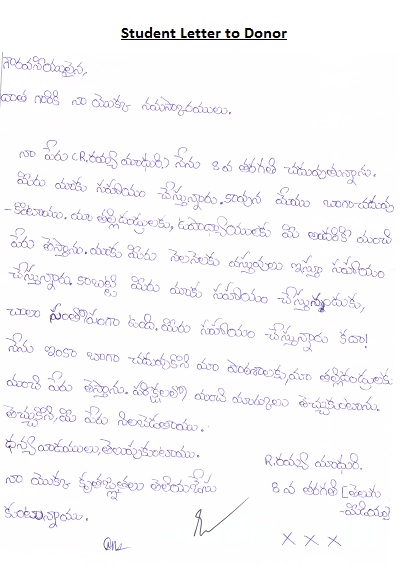 Student Letter to Donor
గౌరవనీయులైన,
దాత గారికి నా యొక్క నమస్కారములు.
నా పేరు (R.రమ్య మాధురి) నేను 8వ తరగతి చదువుతున్నాను.
మీరు మాకు సహాయం చేస్తున్నారు. కావున మేము బాగా చదువు
-కుంటాము. మా తల్లిదండ్రులకు, ఉపాధ్యాయులకు మీ అందరికి మంచి
పేరు తెస్తాను. మాకు మీరు నెలనెలకు వస్తువులు ఇస్తూ సహాయం
చేస్తున్నారు. కాబట్టి మీరు మాకు సహాయం చేస్తున్నందుకు,
చాలా సంతోషంగా ఉంది. మీరు సహాయం చేస్తున్నారు కదా!
నేను ఇంకా బాగా చదువుకొని మా పాఠశాలకు, మా తల్లిదండ్రులకు
మంచి పేరు తెస్తాను. పరీక్షలలో మంచి మార్కులు తెచ్చుకుంటాను.
తెచ్చుకొని, మీ పేరు నిలబెడతాము.
ధన్యవాదములు తెలుపుకుంటాము.
నా యొక్క కృతజ్ఞతలు తెలియజేసు
కుంటున్నాము.
R.రమ్య మాధురి.
8వ తరగతి [తెలుగు
-మీడియం]
X X X